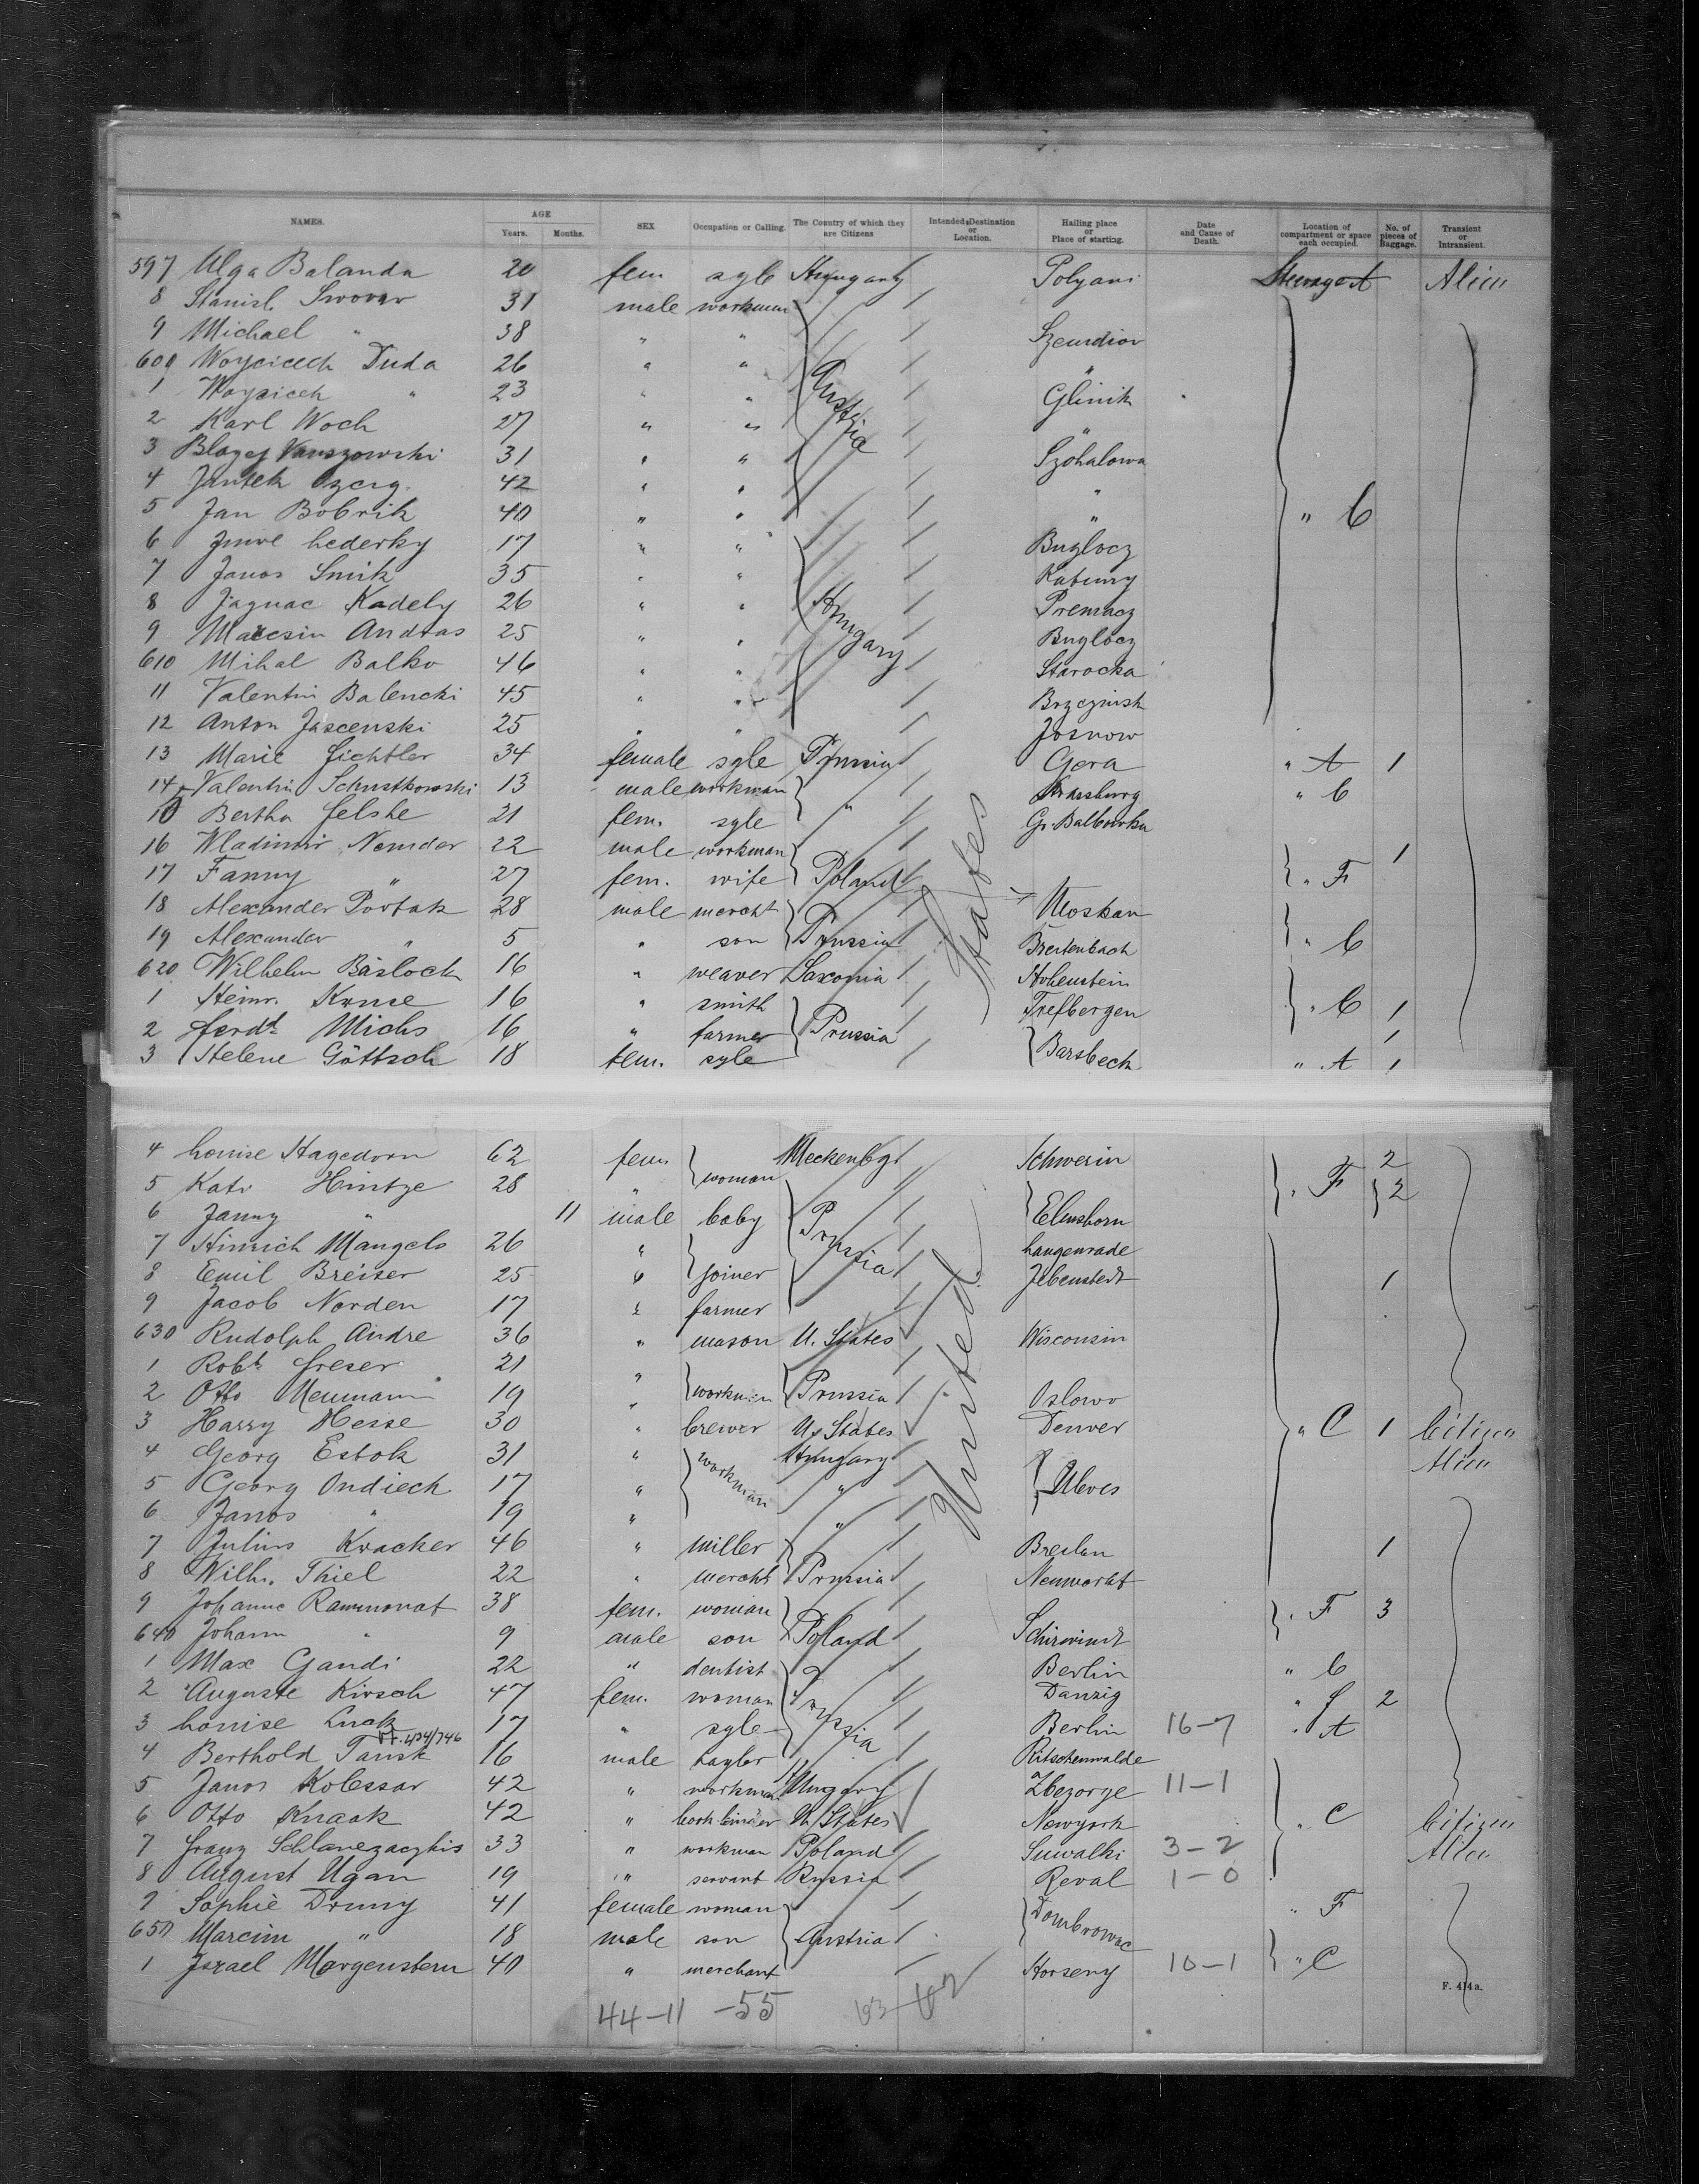 NAMES. AGE Years. Months. SEX Occupation or Calling. The Country of which they are Citizens Intended Destination or Location. Hailing place or Place of starting. Date and Cause of Death. Location of compartment or space each occupied. No. of pieces of Baggage. Transient or Intransient.
597 Olga Balanda 20 fem sgle Hungary Polyani Steerage A Alien
8 Stanisl. 31 male workman
9 Michael " 38 " "
600 Woyciech Duda 26 " " "
1 Woyciech " 23 " " Austria Glinik
2 Karl Woch 27 " " "
3 Blazej 31 " "
4 Jantek 42 " " "
5 Jan Bobrik 40 " " " " C
6 Lederky 17 " " Buglocz
7 Janos Smik 35 " "
8 Jagnac Kadely 26 " " Hungary Premacz
9 Marcsin Andras 25 " " Buglocz
610 Mihal Balko 46 " " Starocka
11 Valentin Balencki 45 " "
12 Anton Jascenski 25 " " Josnow
13 Marie Fichtler 34 female sgle Prussia Gera " A 1
14 Valentin 13 male workman " Strassburg " C
Bertha Felske 21 fem. sgle
16 Wladimir Nemder 22 male workman 1
17 Fanny " 27 fem. wife Poland " F
18 Alexander 28 male mercht Moskau
19 Alexander " 5 " son Prussia Breitenbach " C
620 Wilhelm Bäslock 16 " weaver Saxonia Hohenstein
1 Heinr. Kruse 16 " smith " C 1
2 Ferdt. Michs 16 " farmer Prussia 1
3 Helene Göttsch 18 fem. sgle Barsbeck " A 1
4 Louise Hagedorn 62 fem. Meckenbg Schwerin 2
5 Kath Hintze 28 " woman " F 2
6 Fanny " 11 male baby Prussia Elmshorn
7 Hinrich Mangels 26 " Langenrade
8 Emil Breiser 25 " joiner 1
9 Jacob Norden 17 " farmer
630 Rudolph Andre 36 " mason U. States Wisconsin
1 Robt. Greser 21 "
2 Otto Neumann 19 " workmen Prussia Oslowo
3 Harry Hesse 30 " brewer U. States Denver " C 1 Citizen
4 Georg Estok 31 " Hungary Alien
5 Georg Ondiech 17 " workman "
6 Janos " 19 " "
7 Julius Kracker 46 " miller Breslau 1
8 Wilh. Thiel 22 " mercht Prussia
9 Johanne Rammonat 38 fem. woman " F 3
640 Johann " 9 male son Poland Schirwindt
1 Max Gandi 22 " dentist Berlin " C
2 Auguste Kirsch 47 fem. woman Prussia Danzig " F 2
3 Louise Luck 17 " sgle Berlin 16-7 " A
4 Berthold Tansk 16 male taylor Ritschenwalde
5 Janos Kolessar 42 " workman Ungary 11-1
6 Otto Knaak 42 " bookbinder U. States Newyork " C Citizen
7 Franz 33 " workman Poland Suwalki 3-2 Alien
8 August Ugan 19 " servant Russia Reval 1-0
9 Sophie Druny 41 female woman " F
650 Marcim " 18 male son Austria
1 Israel Morgenstern 40 " merchant Horseny 10-1 " C
United States
44-11 -55
F. 414a.